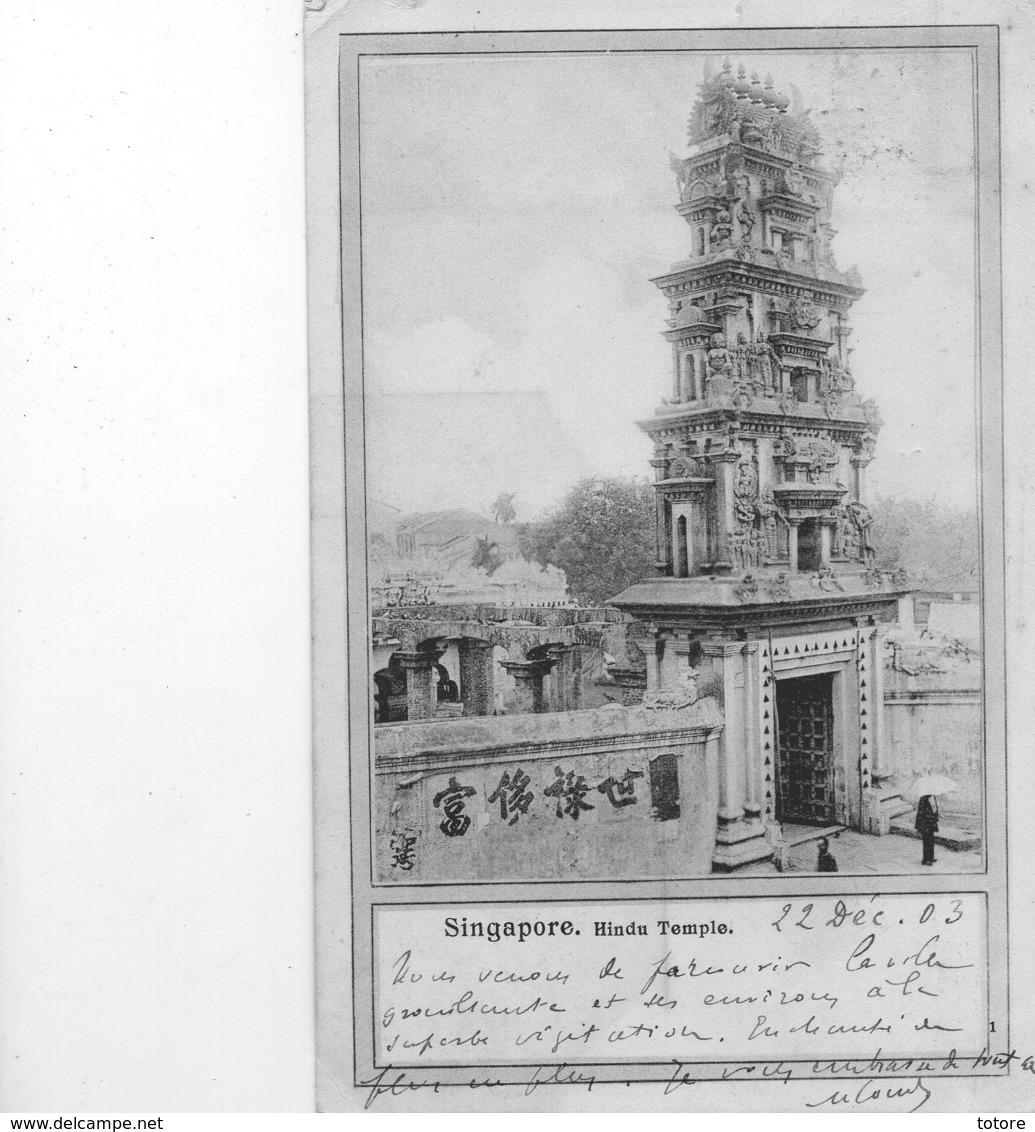 世祿侈富
Singapore. Hindu Temple. 22 Déc. 03
Nous venons de parcourir la ville
grouillante et ses environs à la
superbe végétation. Enchanté de
1
plus en plus. Je vous embrasse de tout
www.delcampe.net
totore